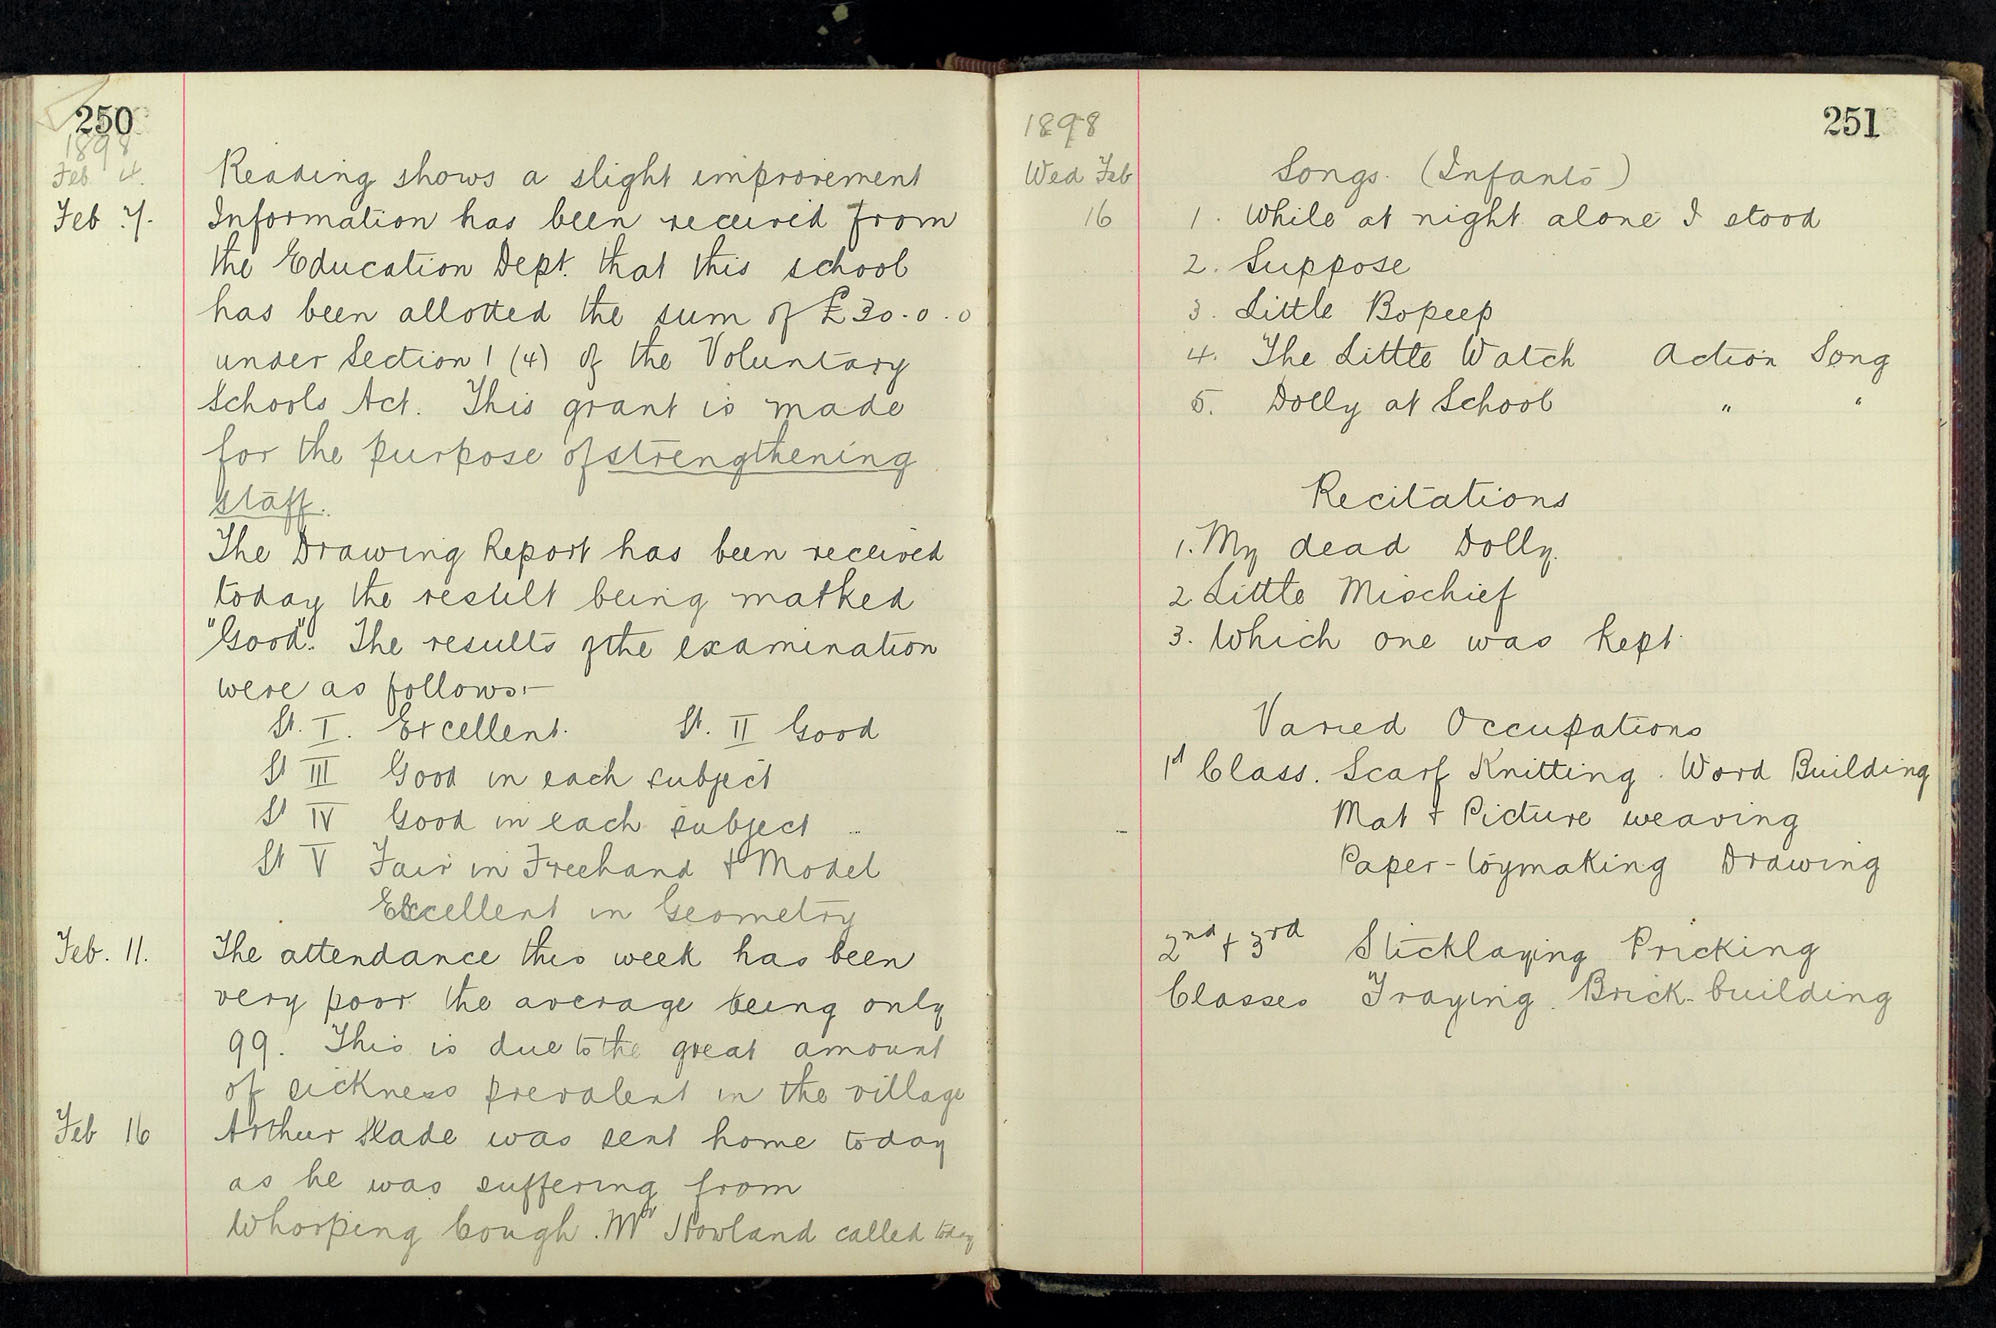 250
1898
Feb 4. Reading shows a slight improvement
Feb 7. Information has been received from
the Education Dept. that this school
has been allotted the sum of £30.0.0
under Section 1 (4) of the Voluntary
Schools Act. This grant is made
for the purpose of strengthening
staff.
The Drawing Report has been received
today the result being marked
"Good". The results of the examination
were as follows:—
St. I. Excellent. St. II Good
St III Good in each subject
St IV Good in each subject
St V Fair in Freehand & Model
Excellent in Geometry
Feb. 11. The attendance this week has been
very poor the average being only
99. This is due to the great amount
of sickness prevalent in the village
Feb 16 Arthur Slade was sent home today
as he was suffering from
Whooping Cough. Mr Howland called today
251
1898
Wed Feb Songs. (Infants)
16 1. While at night alone I stood
2. Suppose
3. Little Bopeep
4. The Little Watch Action Song
5. Dolly at School " "
Recitations
1. My dead Dolly.
2 Little Mischief
3. Which one was kept.
Varied Occupations
1st Class. Scarf Knitting. Word Building
Mat & Picture weaving
Paper-toymaking Drawing
2nd & 3rd Sticklaying Pricking
Classes Traying. Brick-building